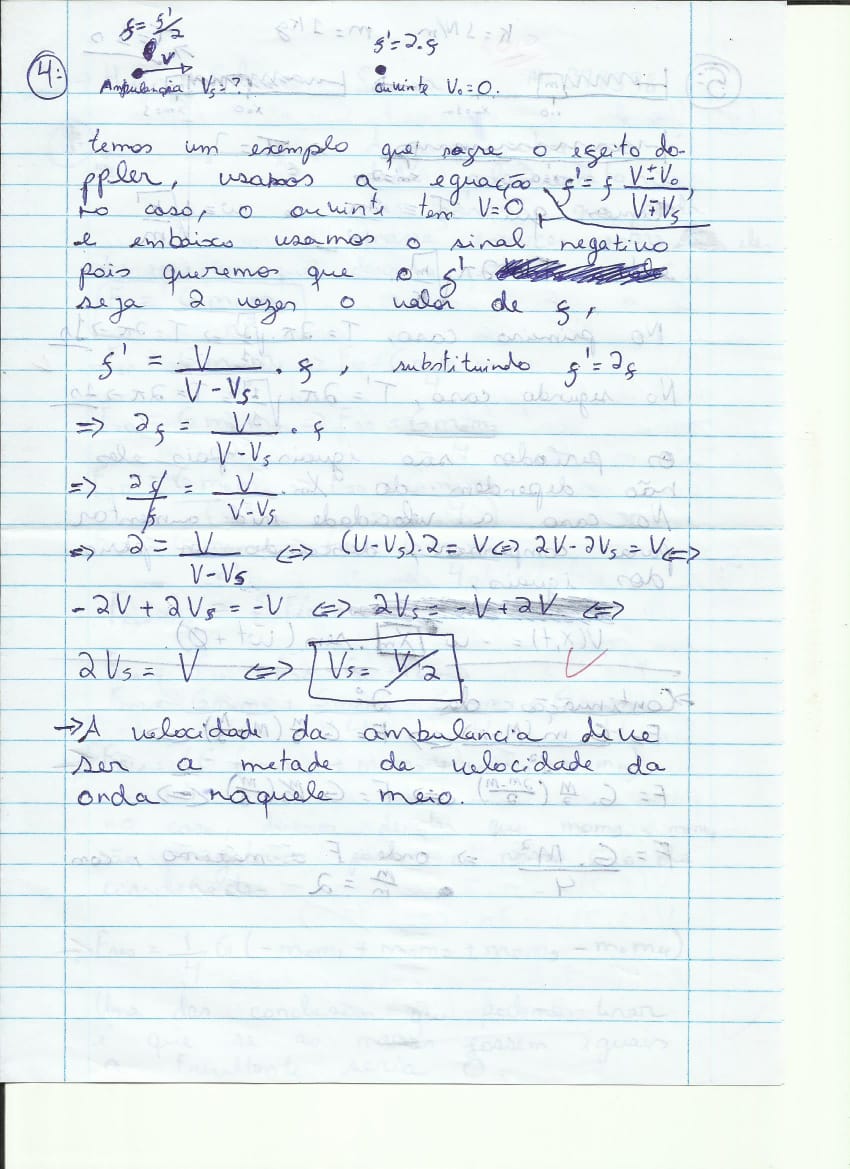 f = f'/2
V
4:
Ambulancia Vs = ?
f' = 2.f
ouvinte Vo = 0.
temos um exemplo que sofre o efeito do-
ppler, usamos a equação f' = f (V ± Vo)/(V ∓ Vs),
no caso, o ouvinte tem V = 0,
e embaixo usamos o sinal negativo
pois queremos que o f'
seja 2 vezes o valor de f,
f' = V/(V - Vs) . f , substituindo f' = 2f
=> 2f = V/(V - Vs) . f
=> 2f/f = V/(V - Vs)
=> 2 = V/(V - Vs) <=> (V - Vs).2 = V <=> 2V - 2Vs = V <=>
- 2V + 2Vs = -V <=> 2Vs = -V + 2V <=>
2Vs = V <=> Vs = V/2
→ A velocidade da ambulancia deve
ser a metade da velocidade da
onda naquele meio.